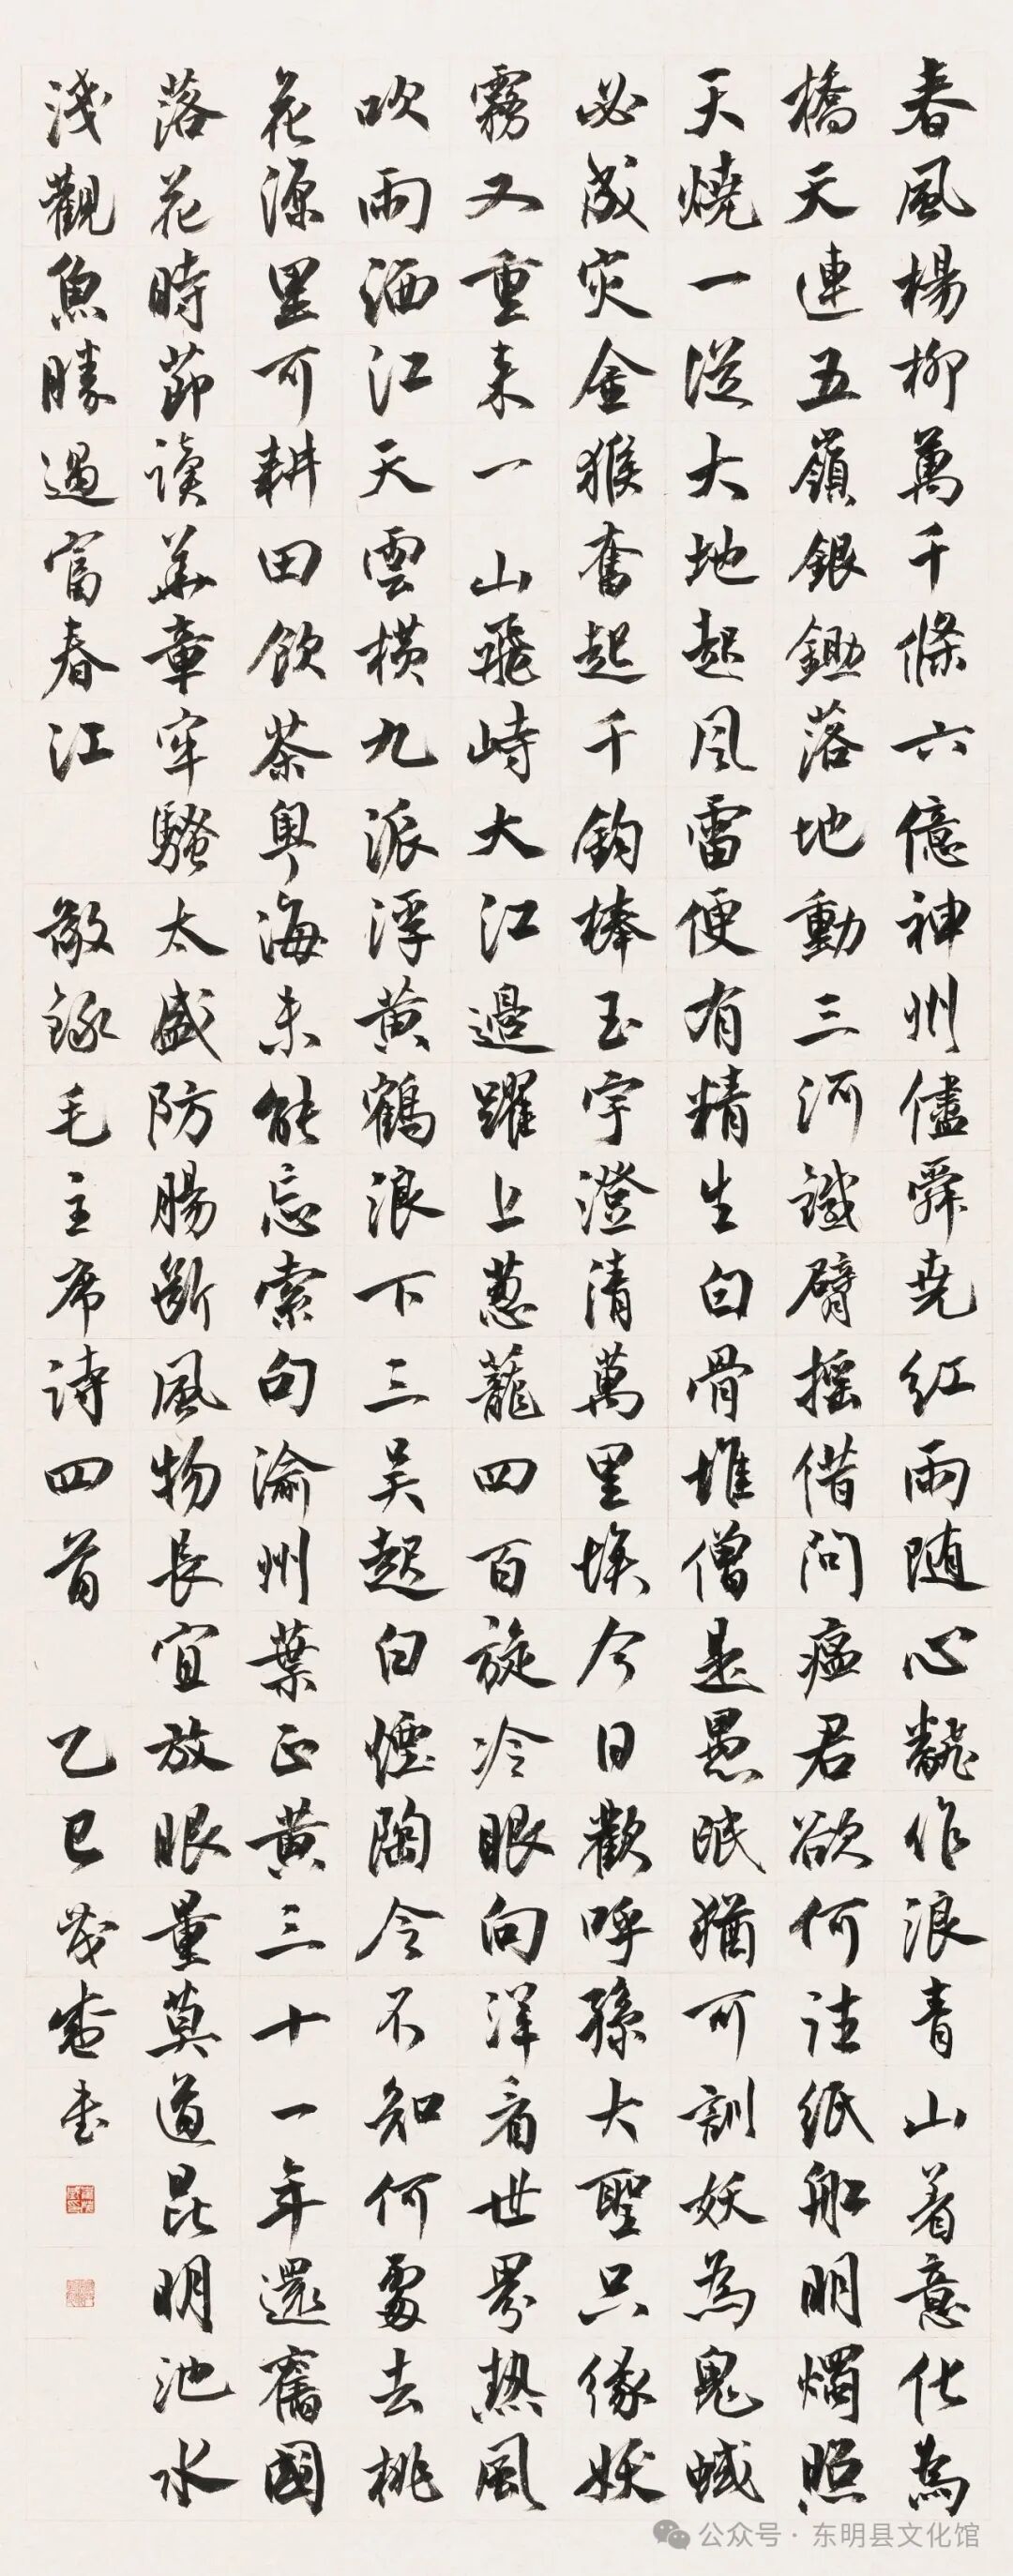 春風楊柳萬千條六億神州儘舜尧紅雨随心翻作浪青山着意化為
橋天連五嶺銀鋤落地動三河鐵臂摇借問瘟君欲何往紙船明燭照
天燒一從大地起風雷便有精生白骨堆僧是愚氓猶可訓妖為鬼蜮
必成灾金猴奮起千鈞棒玉宇澄清萬里埃今日歡呼孫大聖只緣妖
霧又重来一山飛峙大江邊躍上蔥蘢四百旋冷眼向洋看世界熱風
吹雨洒江天雲横九派浮黄鶴浪下三吴起白煙陶令不知何處去桃
花源里可耕田飲茶粤海未能忘索句渝州葉正黄三十一年還舊國
落花時節讀華章牢騷太盛防腸斷風物長宜放眼量莫道昆明池水
淺觀魚勝過富春江 敬録毛主席詩四首 乙巳
公众号·东明县文化馆